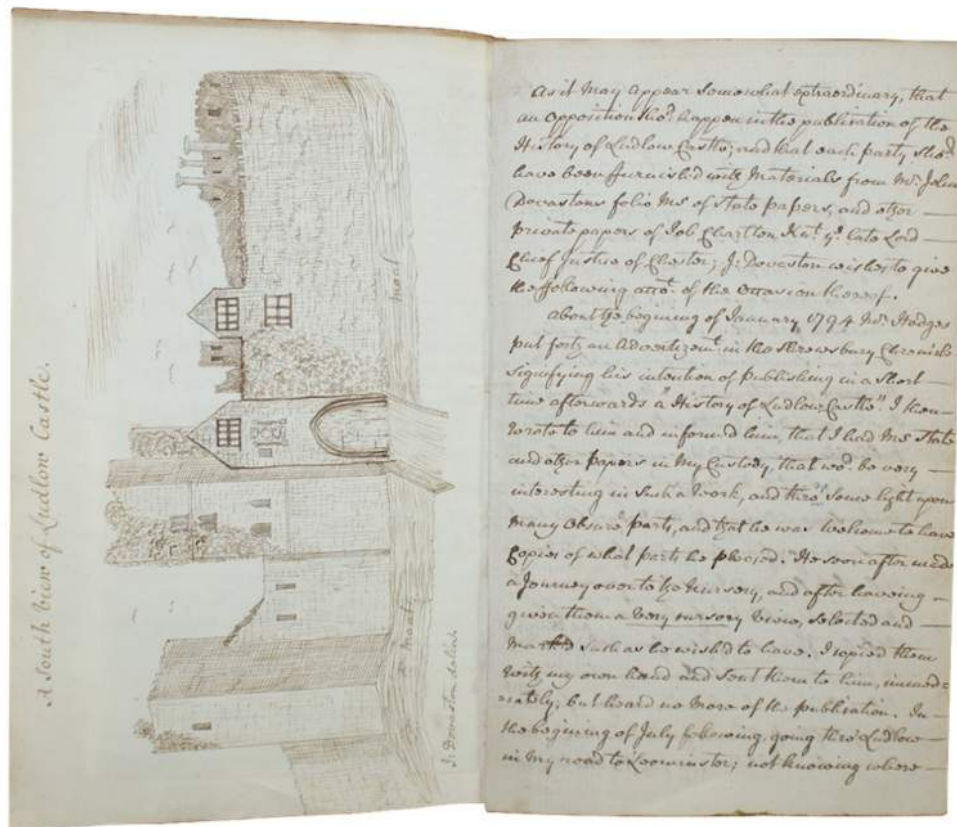 A South View of Ludlow Castle.
moat
moat
J: Dovaston delin.
As it May appear Somewhat extraordinary, that
an opposition sho.d happen in the publication of the
History of Ludlow Castle; and that each party sho.d
have been furnish'd with Materials from Mr. John
Dovastons folio Ms of state papers, and other —
private papers of Job Charlton Kn.t y.e late Lord —
Chief Justice of Chester; J: Dovaston wishes to give
the following acco.t of the Occasion thereof.
About the begining of January 1794 Mr. Hodges
put forth an Advertizem.t in the Shrewsbury Chronicle
signifying his intention of publishing in a Short —
time afterwards a "History of Ludlow Castle". I then
wrote to him and inform'd him, that I had Ms State
and other papers in My Custody, that wo.d be very —
interesting in Such a Work, and thro' Some light upon
Many Obscure parts, and that he was Welcome to have
Copies of what parts he pleased. He soon after made
a Journey over to the Nursery, and after haveing —
given them a Very cursory View, Selected and —
Mark'd such as he wish'd to have. I copied them
with my own hand and Sent them to him, immed=
=iately; but heard no More of the publication. In —
the begining of July following, going thro' Ludlow —
in My road to Leominster; not knowing where —